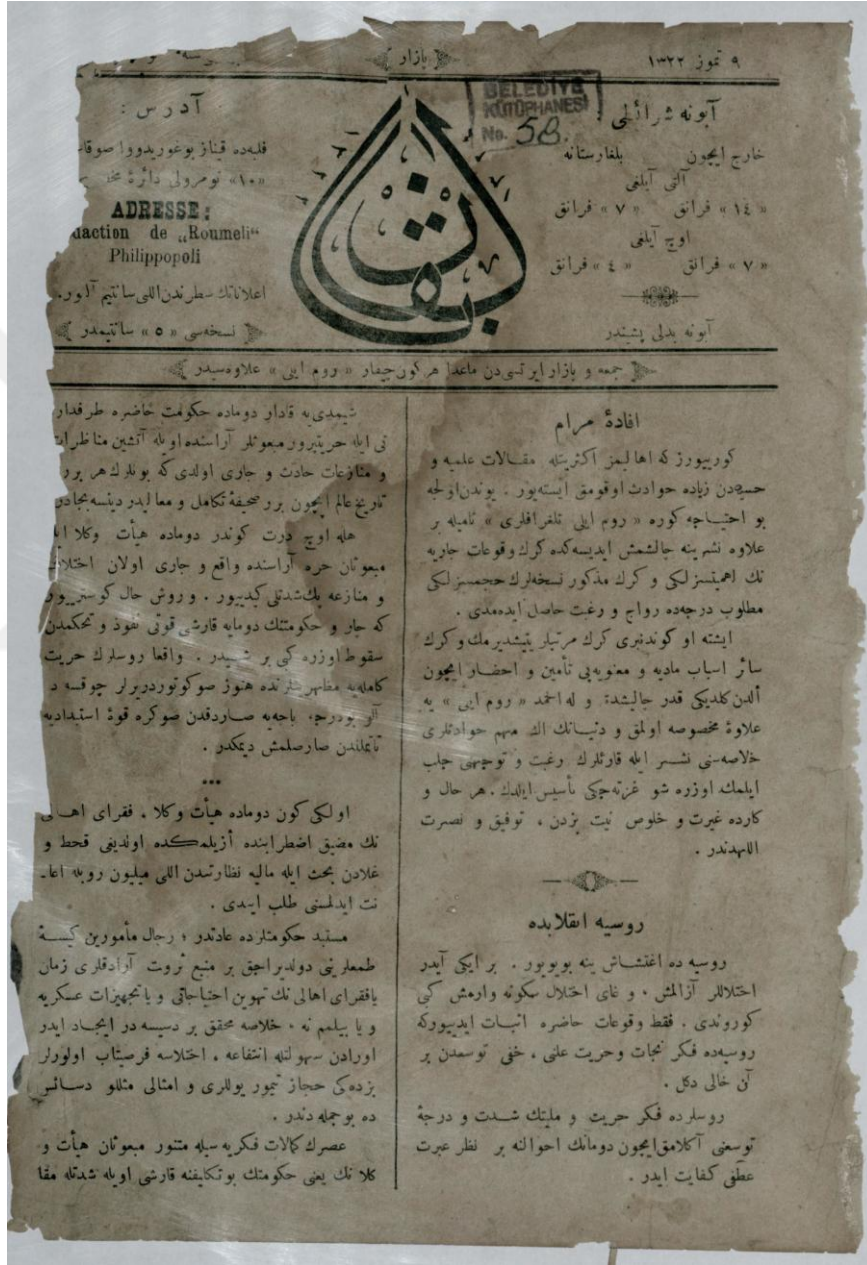 ٩ تموز ١٣٢٢
بازار
آبونه شرائطی :
خارج ایچون بلغارستانه
آلتی آیلغی
« ١٤ » فرانق « ٧ » فرانق
اوچ آیلغی
« ٧ » فرانق « ٤ » فرانق
آبونه بدلی پشیندر
BELEDİYE
KÜTÜPHANESİ
No. 58.
آدرس :
فلبه‌ده قیناز بوغوریدووا صوقا
« ١٠ » نومرولی دائرهٔ
ADRESSE:
daction de „Roumeli“
Philippopoli
اعلاناتك سطرندن اللی سانتیم آلنور.
نسخه‌سی « ٥ » سانتیمدر
جمعه و بازار ایرتسی‌دن ماعدا هر كون چیقار « روم ایلی » علاوه‌سیدر
افادهٔ مرام
كوریيورز كه اهالیمز اكثریتله مقالات علمیه و
حسیه‌دن زیاده حوادث اوقومق ایسته‌یور. بوندن اولجه
بو احتیاجه كوره « روم ایلی تلغرافلری » نامیله بر
علاوه نشرینه چالشمش ایدیسه‌كده كرك وقوعات جاریه
نك اهمیتسزلكی و كرك مذكور نسخه‌لرك حجمسزلكی
مطلوب درجه‌ده رواج و رغبت حاصل ایده‌مدی .
ایشته او كوندنبری كرك مرتبلر یتیشدیرمك و كرك
سائر اسباب مادیه و معنویه‌یی تأمین و احضار ایچون
ألدن كلدیكی قدر چالیشدق و له الحمد « روم ایلی » یه
علاوهٔ مخصوصه اولمق و دنیانك اك مهم حوادثلری
خلاصه‌سنی نشر ایله قارئلرك رغبت و توجهنی جلب
ایلمك اوزره شو غزته‌جكی تأسیس ایلدك . هر حال و
كارده غیرت و خلوص نیت بزدن ، توفیق و نصرت
اللهدندر .
روسیه انقلابده
روسیه ده اغتشاش ینه بویویور . بر ایكی آیدر
اختلاللر آزالمش ، و غای اختلال سكونه وارمش كبی
كوروندی . فقط وقوعات حاضره اثبات ایدییوركه
روسیه‌ده فكر نجات وحریت علنی ، خفی توسعدن بر
آن خالی دكل .
روسلرده فكر حریت و ملیتك شدت و درجهٔ
توسعنی آكلامق ایچون دومانك احوالنه بر نظر عبرت
عطفی كفایت ایدر .
شیمدی‌یه قادار دوماده حكومت حاضره طرفدار
نی ایله حریتپرور مبعوثلر آراسنده اویله آتشین مناظرات
و منازعات حادث و جاری اولدی كه بونلرك هر بر
تاریخ عالم ایچون برر صحیفهٔ تكامل و معالیدر دینسه بجادر
هله اوچ درت كوندر دوماده هیأت وكلا ایله
مبعوثان حره آراسنده واقع و جاری اولان اختلاف
و منازعه پك شدتلی كیدییور . و روش حال كوسترییور
كه چار و حكومتنك دومایه قارشی قوتی نفوذ و تحكمدن
سقوط اوزره كبی بر شیدر . واقعا روسلرك حریت
كامله‌یه مظهریتلرنده هنوز صوكوتوردیرلر چوقسه د
صاردقدن صوكره قوهٔ استبدادیه
تاتملندن صارصلمش دیمكدر .
***
اولكی كون دوماده هیأت وكلا ، فقرای اهالی
نك مضیق اضطرابنده أزیلمكده اولدیغی قحط و
غلادن بحث ایله مالیه نظارتندن اللی میلیون روبله اعا-
نت ایدلمسنی طلب ایتدی .
مستبد حكومتلرده عادتدر ؛ رجال مأمورین كیسهٔ
طمعلرینی دولدیراجق بر منبع ثروت آرادقلری زمان
یا فقرای اهالی نك تهوین احتیاجاتی و یا تجهیزات عسكریه
و یا بیلمم نه ، خلاصه محقق بر دسیسه در ایجاد ایدر
اورادن سهولتله انتفاعه ، اختلاسه فرصتیاب اولورلر
بزده‌كی حجاز تیمور یوللری و امثالی مثللو دسائس
ده بو جمله دندر .
عصرك كمالات فكریه سیله متنور مبعوثان هیأت و
كلا نك یعنی حكومتك بو تكلیفنه قارشی اویله شدتله مقا